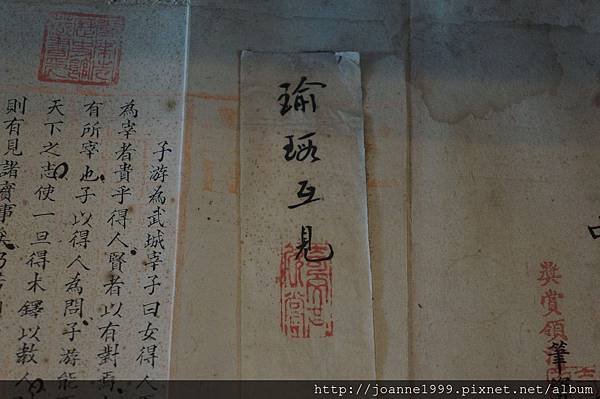 獎賞領
筆
瑜瑕互見
子游為武城宰子曰女得人
為宰者貴乎得人賢者以有對焉
有所宰也子以得人為問子游能
天下之志使一旦得木鐸以教人
則有見諸實事矣乃
http://joanne1999.pixnet.net/album